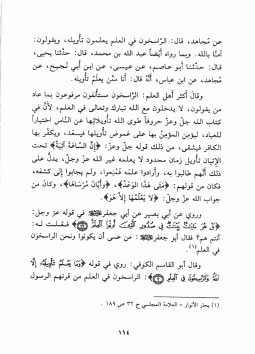 عن مجاهد، قال: الرّاسخون في العلم يعلمون تأويله، ويقولون:
آمنّا بالله. وبما رواه أيضاً عبد الله بن محمد، قال: حدّثنا يحيى،
قال: حدّثنا أبو عاصم، عن عيسى، عن ابن أبي نجيح، عن
مجاهد، عن ابن عباس، أنّه قال: أنا ممّن يعلم تأويله.
وقال أكثر أهل العلم: الرّاسخون مستأنفون مرفوعون بما عاد
من يقولون، لا يدخلون مع الله تبارك وتعالى في العلم، لأنّ في
كتاب الله جلّ وعزّ حروفاً طوى الله تأويلاتها عن النّاس اختباراً
للعباد، ليؤمن المؤمنُ بها على غموض تأويلها فيسعد، ويكفُر بها
الكافر فيشقى، من ذلك قوله جلّ وعزّ: ﴿إنَّ السَّاعَةَ آتِيَةٌ﴾ تحت
الإتيان تأويل زمان محدود لا يعلمه غير الله عزّ وجلّ، يدلُّ على
ذلك أنّهم طالبوا به، وأرادوا علمه فمُنِعوا، ولم يجابوا إلى كشفه،
فكان من قولهم: ﴿مَتَى هَذَا الْوَعْدُ﴾، ﴿وأيَّانَ مُرْسَاهَا﴾، وكان من
جواب الله عزّ جلّ: ﴿لا يَعْلَمُهَا إِلَّا هُوَ﴾.
وروي عن أبي بصير عن أبي جعفر في قوله عز وجل:
﴿بَلْ هُوَ آيَاتٌ بَيِّنَاتٌ فِي صُدُورِ الَّذِينَ أُوتُوا الْعِلْمَ﴾
أنتم هم؟ فقال أبو جعفر: من عسى أن يكونوا ونحن الراسخون
في العلم(١).
وقال أبو القاسم الكوفي: روي في قوله ﴿وَمَا يَعْلَمُ تَأْوِيلَهُ إِلَّا
اللَّهُ وَالرَّاسِخُونَ فِي الْعِلْمِ﴾: الراسخون في العلم من قرنهم الرسول
(١) بحار الأنوار - العلامة المجلسي ج ٢٣ ص ١٨٩.
١١٤